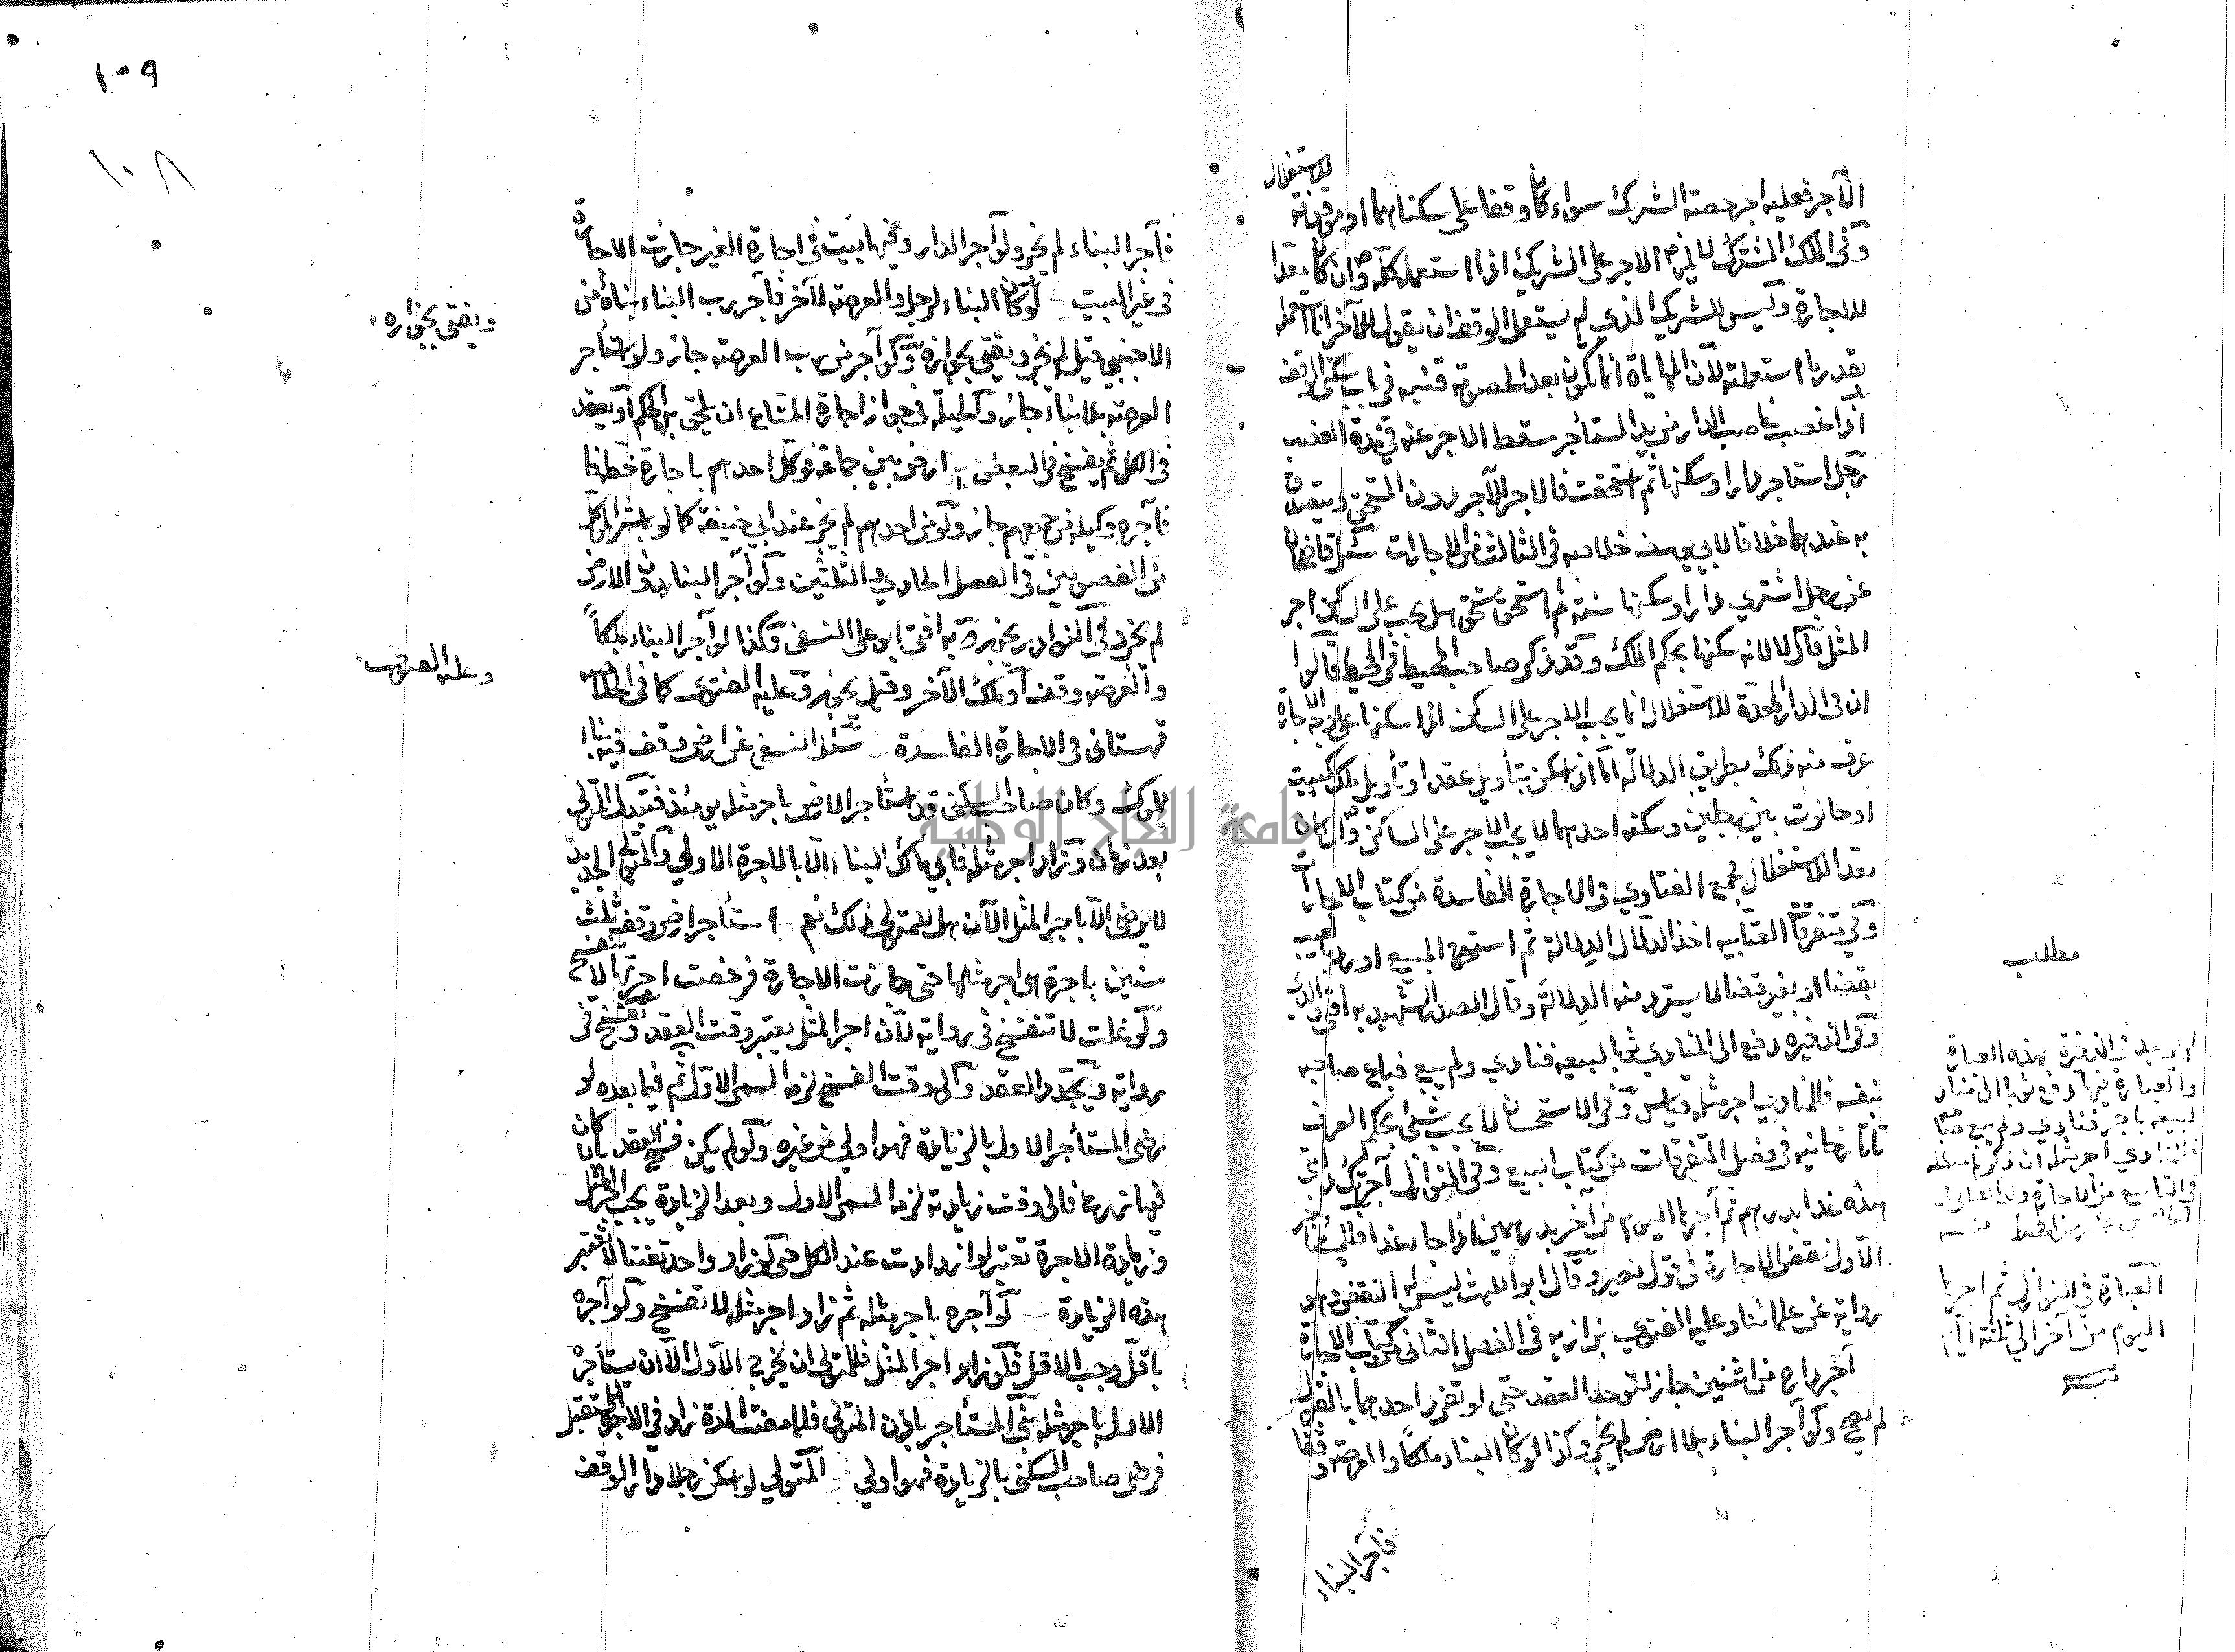 الآجر فعليه اجر حصة الشريك سواء كان وقفا على سكناهما او موقوفة للاستغلال
وفي الملك المشترك لا يلزم الاجر على الشريك اذا استعمله كله وان كان معدا
للاجارة وليس للشريك الذي لم يستعمل الوقف ان يقول للآخر انا استعمله
بقدر ما استعملته لان المهاياة انما تكون بعد الخصومة قنيه في باب سكنى الوقف
اذا غصب غاصب الدار من يد المستأجر سقط الاجر عنه في مدة الغصب
رجل استاجر دارا وسكنها ثم استحقت فالاجر للآجر دون المستحق ويتصدق
به عندهما خلافا لابي يوسف خلاصه في الثالث من الاجارات سئل قاضيخان
عن رجل اشترى دارا وسكنها سنة ثم استحق مستحق هل يجب على الساكن اجر
المثل قال لا لانه سكنها بحكم الملك وقد ذكر صاحب المحيط في المحيط قالوا
ان في الدار المعدة للاستغلال انما يجب الاجر على الساكن اذا سكنها على وجه الاجارة
عرف منه ذلك بطريق الدلالة اما اذا سكن بتأويل عقد او تأويل ملك كبيت
او حانوت بين رجلين وسكنه احدهما لا يجب الاجر على الساكن وان كان
معدا للاستغلال مجمع الفتاوي في الاجارة الفاسدة من كتاب الاجارات
وفي متفرقات العتابيه اخذ الدلال الدلالة ثم استحق المبيع او رد بعيب
بقضاء او بغير قضاء لا يسترد منه الدلالة وقال الصدر الشهيد به افتى والدي
وفي الذخيره دفع الى المنادي ثوبا لبيعه فنادي ولم يبع فباع صاحبه
بنفسه فللمنادي اجر مثله قياس وفي الاستحسان لا يجب شئ بحكم العرف
تاتارخانيه في فصل المتفرقات من كتاب البيع وفي النوازل آجرتك دابتي
هذه غدا بدرهم ثم آجرها اليوم من آخر بدرهمين فاذا جاء غدا فالمستأجر
الاول نقض الاجارة في قول نصير وقال ابو الليث ليس له النقض وهو
رواية عن علمائنا وعليه الفتوى بزازيه في الفصل الثاني من كتاب الاجارة
آجر داره من اثنين جاز لتوحد العقد حتى لو تفرد احدهما بالقبول
لم يصح ولو آجر البناء بلا ارض لم يجز وكذا لو كان البناء ملكا والعرصة وقفا
فآجر البناء
مطلب
لم يوجد في الذخيرة بهذه العبارة
والعبارة فيها دفع ثوبا الى مناد
لبيعه باجر فنادي ولم يبع
العبارة في النوازل ثم اجرها
اليوم من آخر الى ثلثة ايام
١٠٩
١٠٨
فآجر البناء لم يجز ولو آجر الدار وفيها بيت في اجارة الغير جازت الاجارة
في غير البيت لو كان البناء لرجل والعرصة لآخر فآجر رب البناء بناءه من
الاجنبي قيل لم يجز ويفتى بجوازه ولو آجر من رب العرصة جاز ولو استأجر
العرصة بلا بناء جاز والحيلة في جواز اجارة المشاع ان يلحق به الحكم او يعقد
في الكل ثم يفسخ في البعض ارض بين جماعة فوكل احدهم باجارة حظه
فآجره وكيله من جميعهم جاز ولو من احدهم لم يجز عند ابي حنيفة كما لو باشر الموكل
من الفصولين في الفصل الحادي والثلثين ولو آجر البناء دون الارض
لم يجز وفي النوادر يجوز وبه افتى ابو على النسفى وكذا لو آجر البناء ملكاً
والعرصه وقف او ملك الآخر وقيل يجوز وعليه الفتوى كما في الخلاصه
قهستاني في الاجارة الفاسدة سئل النسفي عن ارض وقف فيه بناء
مملوك وكان صاحب السكنى قد استأجر الارض باجر مثله يومئذ فتبدل المتولي
بعد زمان وزاد اجر مثله فابي مالك البناء الا بالاجرة الاولى والمتولي الجديد
لا يرضى الا باجر المثل الآن هل للمتولي ذلك نعم استأجر ارض وقف ثلث
سنين باجرة هي اجر مثلها حتى جازت الاجارة فرخصت اجرتها لا تنفسخ
ولو غلت لا تنفسخ في رواية لان اجر المثل يعتبر وقت العقد وتفسخ في
رواية ويجدد العقد والى وقت الفسخ لزمه المسمى الاول ثم فيما بعده لو
رضى المستأجر الاول بالزيادة فهو اولى من غيره ولو لم يكن فسخ العقد بان كان
فيها زرع فالى وقت زيادته لزمه المسمى الاول وبعد الزيادة يجب اجر المثل
وزيادة الاجرة تعتبر لو ازدادت عند الكل حتى لو زاد واحد تعنتا لا تعتبر
هذه الزيادة لو آجره باجر مثله ثم زاد اجر مثله لا تفسخ ولو آجره
باقل وجب الاقل فلو زاد اجر المثل فللمتولي ان يخرج الاول الا ان يستأجره
الاول باجر مثله بنى المستأجر باذن المتولي فلما مضت المدة زاد في الاجر للمستقبل
فرضى صاحب السكنى بالزيادة فهو اولى المتولي لو اسكن رجلا دار الوقف
ويفتى بجوازه
وعليه الفتوى
جامعة النجاح الوطنية